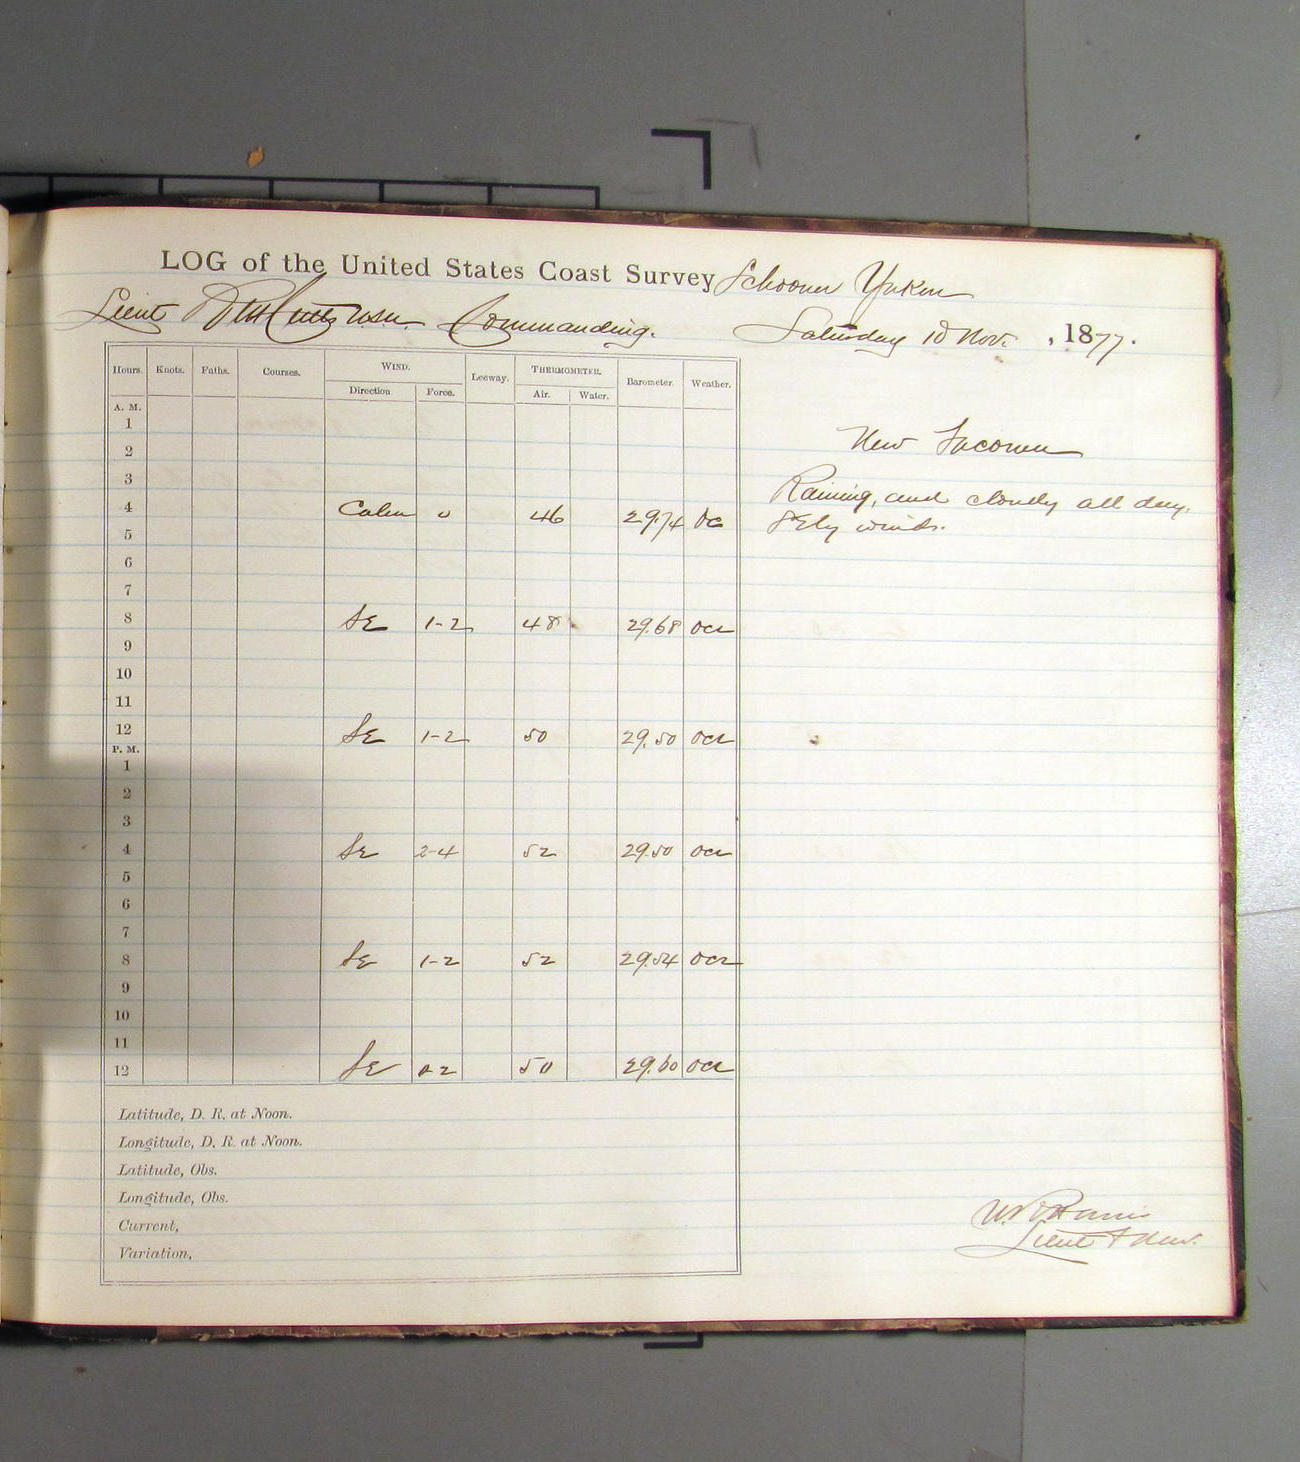 LOG of the United States Coast Survey Schooner Yukon
Lieut Commanding. Saturday 10 Nov. , 1877.
Hours. Knots. Faths. Courses. WIND. Leeway. THERMOMETER. Barometer. Weather.
Direction Force. Air. Water.
A. M.
1
2 New Tacoma
3 Raining, and cloudy all day.
4 Calm 0 46 29.74 Oc SEly winds.
5
6
7
8 SE 1-2 48 29.68 ocr
9
10
11
12 SE 1-2 50 29.50 ocr
P. M.
1
2
3
4 SE 2-4 52 29.50 ocr
5
6
7
8 SE 1-2 52 29.54 ocr
9
10
11
12 SE 0-2 50 29.60 ocr
Latitude, D. R. at Noon.
Longitude, D. R. at Noon.
Latitude, Obs.
Longitude, Obs.
Current,
Variation,
Lieut